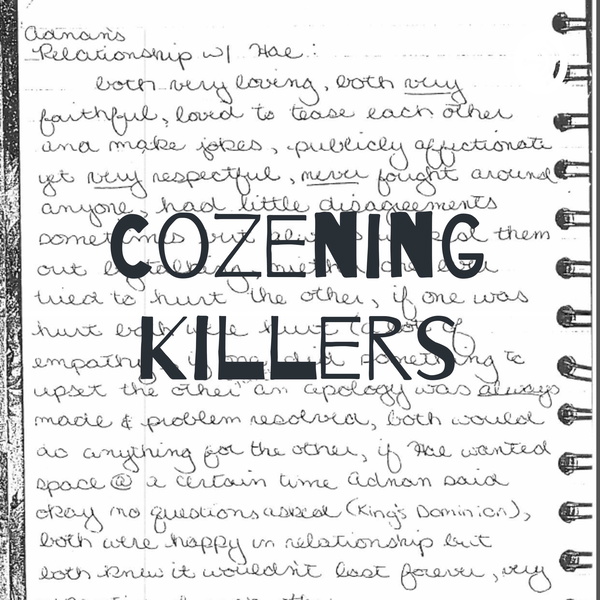 Adnan's
Relationship w/ Hae:
both very loving, both very
faithful, loved to tease each other
and make jokes, publicly affectionate
yet very respectful, never fought around
anyone, had little disagreements
COZENING
sometimes but always worked them
out by talking, neither one ever
tried to hurt the other, if one was
KILLERS
hurt both were hurt (a lot of
empathy) if one did something to
upset the other an apology was always
made & problem resolved, both would
do anything for the other, if Hae wanted
space @ a certain time Adnan said
okay no questions asked (King's Dominion),
both were happy in relationship but
both knew it wouldn't last forever, very